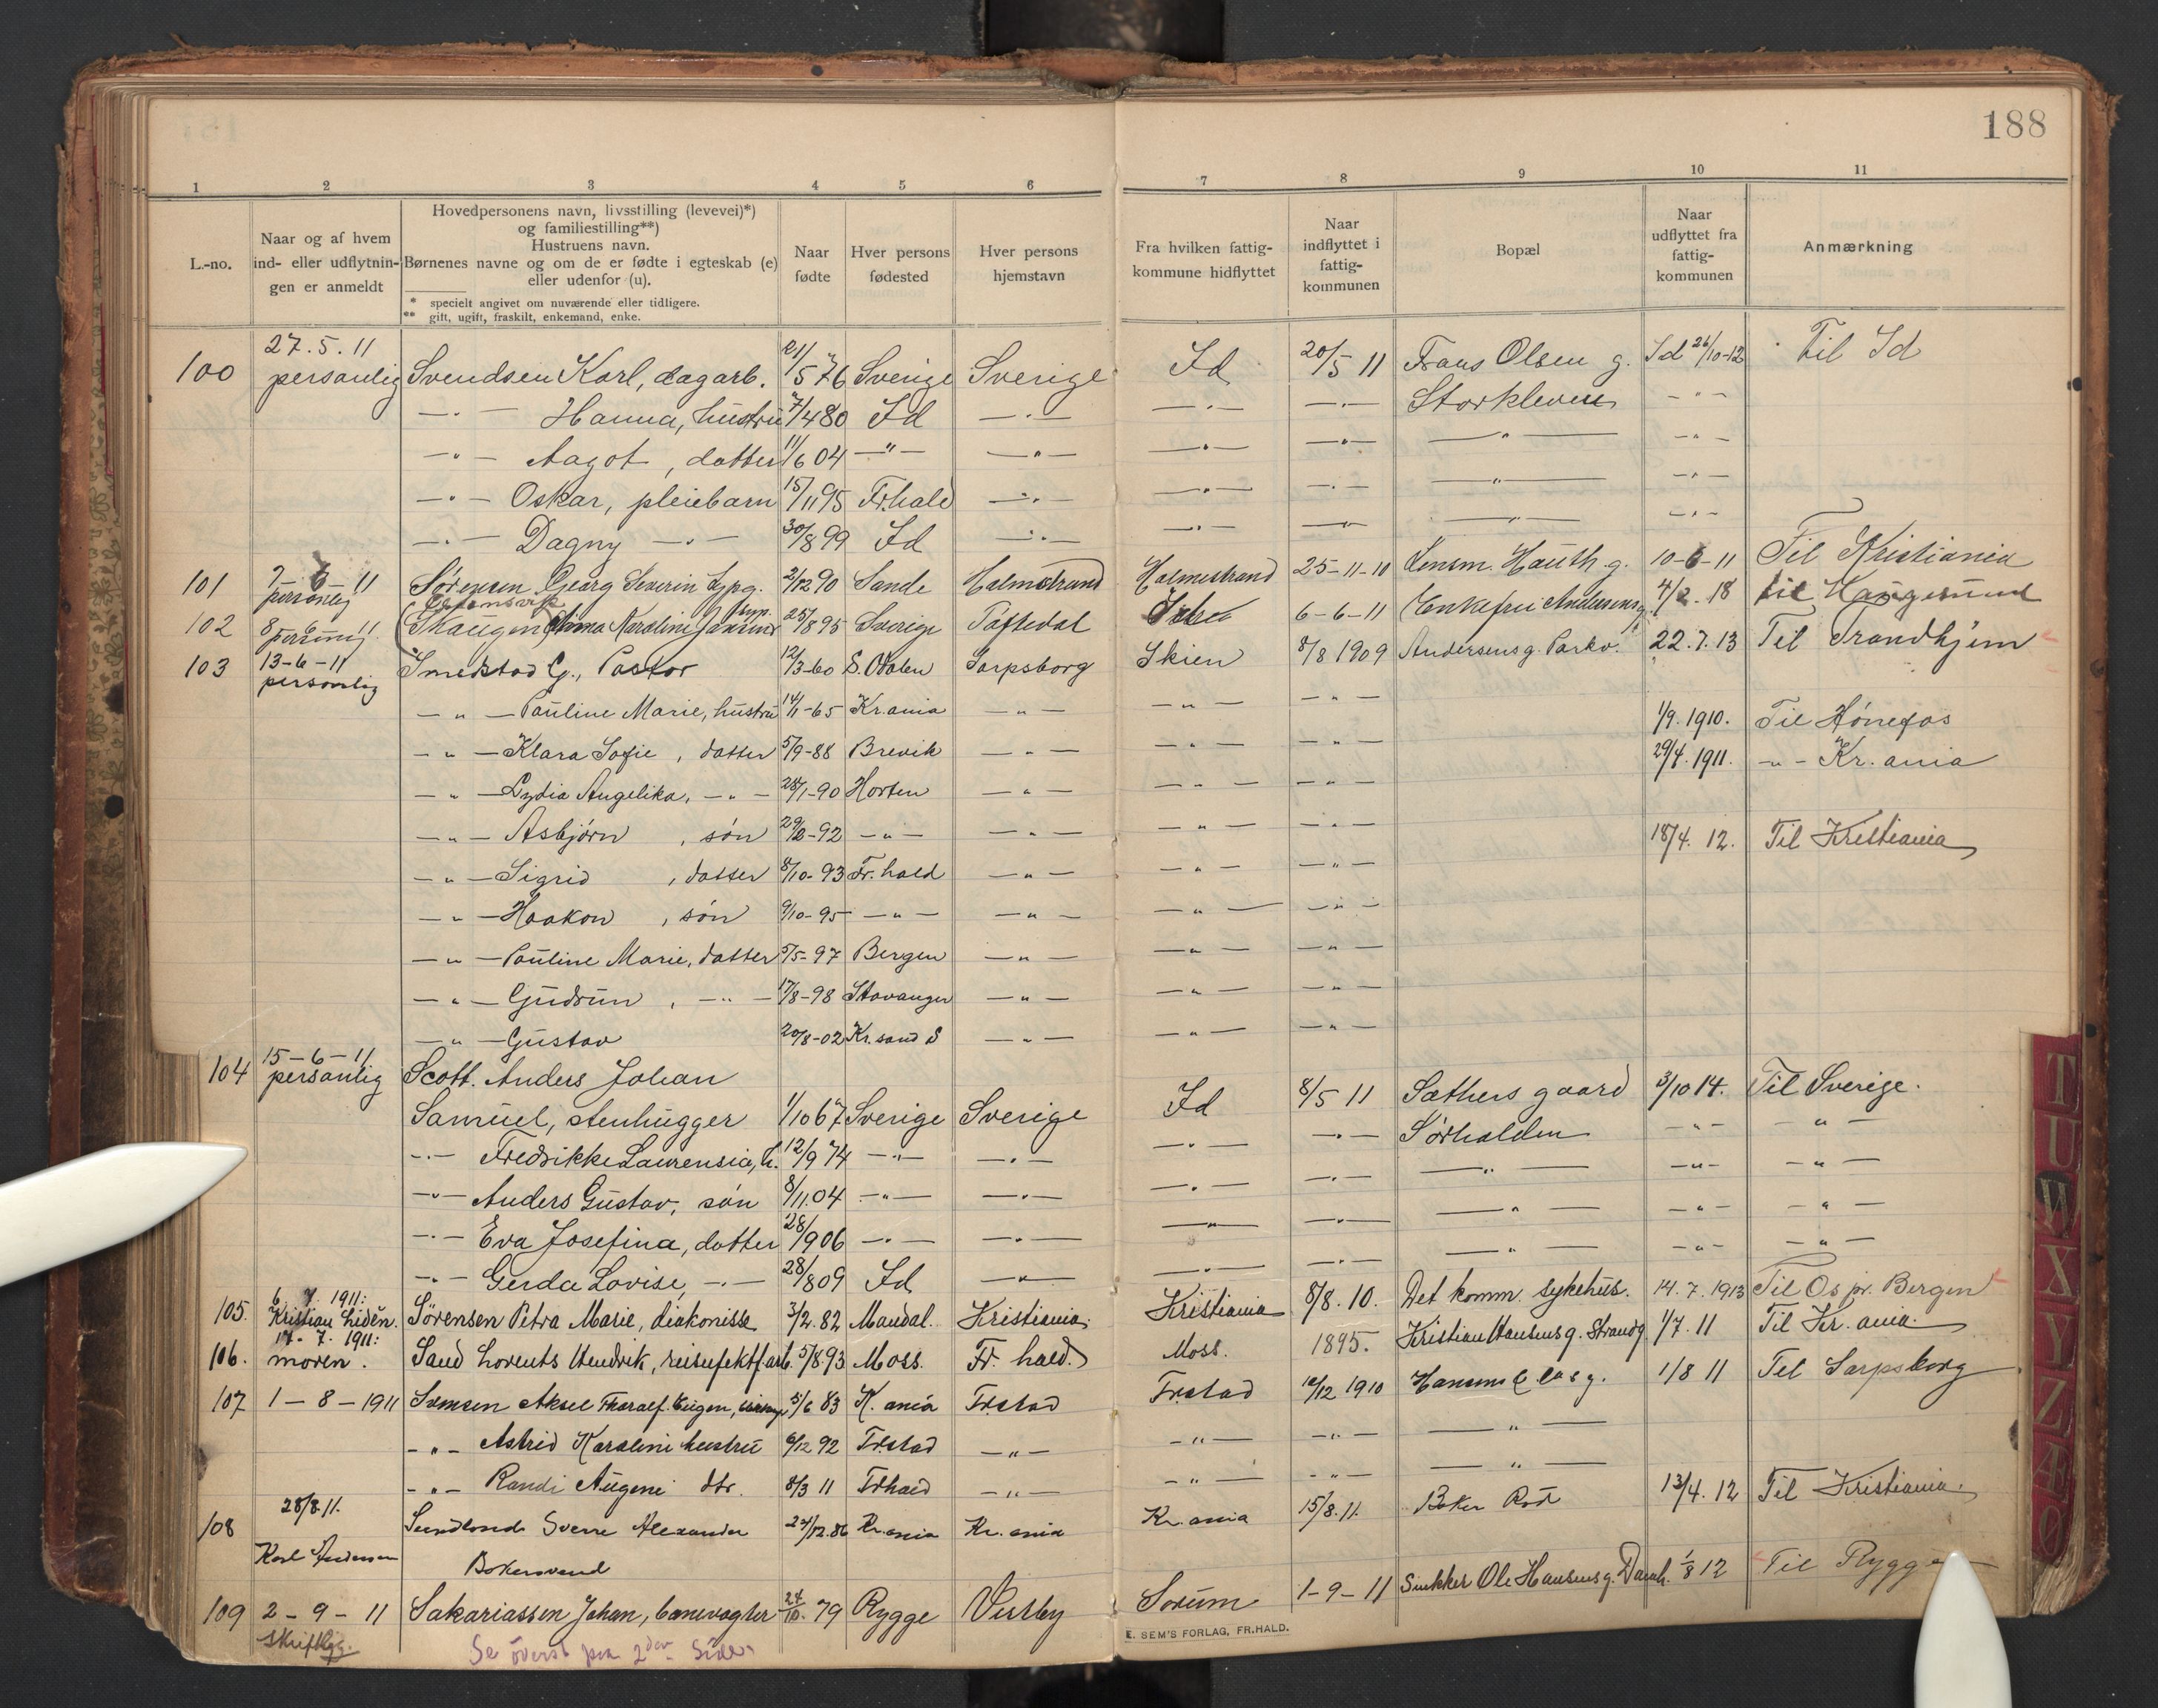 188
1 2 3 4 5 6 7 8 9 10 11
L.-no.
Naar og af hvem ind- eller udflytnin- gen er anmeldt
Hovedpersonens navn, livsstilling (levevei)*)
og familiestilling**)
Hustruens navn.
Børnenes navne og om de er fødte i egteskab (e)
eller udenfor (u).
* specielt angivet om nuværende eller tidligere.
** gift, ugift, fraskilt, enkemand, enke.
Naar fødte
Hver persons fødested
Hver persons hjemstavn
Fra hvilken fattig- kommune hidflyttet
Naar indflyttet i fattig- kommunen
Bopæl
Naar udflyttet fra fattig- kommunen
Anmærkning
27.5.11
100 personlig Svendsen Karl, dagarb. 21/5 76 Sverige Sverige Id 20/5 11 Frans Olsen g. Id 26/10-12 Til Id
—"— Hanna, hustru 7/4 80 Id —"— —"— —"— Storkleven —"—
—"— Aagot, datter 11/6 04 —"— —"— —"— —"— —"— —"—
—"— Oskar, pleiebarn 15/11 95 Fr.hald —"— —"— —"— —"— —"—
—"— Dagny —"— 30/8 99 Id —"— —"— —"— —"— —"—
101 7-6-11 personlig Sørensen Georg Severin Typg. 2/12 90 Sande Holmstrand Holmestrand 25-11-10 Lensm. Hauth g. 10-6-11 Til Kristiania
102 8-6-11 personlig Skaugen, Anna Karoline 25/8 95 Sverige 6-6-11 Enkefru Andersens g. 4/2. 18 til Haugesund
103 13-6-11 personlig Smedstad G., Pastor 12/3-60 S. Odalen Sarpsborg Skien 8/8 1909 Andersens g. Parkv. 22.7.13 Til Trondhjem
—"— Pauline Marie, hustru 14/11-65 Kr.ania —"— —"— —"—
—"— Klara Sofie, datter 5/9-88 Brevik —"— —"— —"— 1/9.1910. Til Hønefos
—"— Lydia Angelika, —"— 28/1-90 Horten —"— —"— —"— 29/4.1911. —"— Kr.ania
—"— Asbjørn, søn 29/2-92 —"— —"— —"— —"—
—"— Sigrid, datter 8/10-93 Fr.hald —"— —"— —"— 18/4. 12. Til Kristiania
—"— Haakon, søn 9/10-95 —"— —"— —"— —"—
—"— Pauline Marie, datter 5/5-97 Bergen —"— —"— —"—
—"— Gudrun, —"— 17/8-98 Stavanger —"— —"— —"—
—"— Gustav 20/8-02 Kr.sand S —"— —"— —"—
104 15-6-11 personlig Scott. Anders Johan
Samuel, stenhugger 1/10 67 Sverige Sverige Id 8/5 11 Sæthers gaard 3/10 14. Til Sverige.
—"— Fredrikke Laurensia, h. 12/9 74 —"— —"— —"— —"— Sørhalden —"— —"—
—"— Anders Gustav, søn 8/11.04 —"— —"— —"— —"— —"— —"— —"—
—"— Eva Josefina, datter 28/9 06 —"— —"— —"— —"— —"— —"— —"—
—"— Gerda Lovise, —"— 28/8 09 Id —"— —"— —"— —"— —"— —"—
105. 6.7.1911: Kristian Lidén. Sørensen Petra Marie, diakonisse 3/2. 82 Mandal. Kristiania. Kristiania 8/8. 10. Det komm. sykehus. 14.7.1913 Til Os pr. Bergen
106. 17.7.1911: moren. Sand Lorents Hendrik, 5/8.93 Moss. Fr. hald. Moss. 1895. Kristian Hansens g. Strandg 1/7. 11 Til Kr. ania.
107 1-8-1911 Aksel Tharalf Eugen, 5/6 83 K. ania Fr.stad Fr.stad 10/12 1910 Hansens 1/8 11 Til Sarpsborg
—"— Astrid Karoline hustru 6/12 92 Fr.stad —"— —"— —"— —"—
—"— Randi Augeni dtr. 8/3 11 Frhald —"— —"— —"— —"—
108 28/8.11. Karl Andersen Sundland Sverre Alexander 23/12.86 Kr.ania Kr. ania Kr.ania 15/8.11. Baker Rød 13/4. 12 Til Kristiania.
Bakersvend
109 2-9-11 skriftlig. Sakariassen Johan, banevogter 24/10. 79 Rygge Vestby Sørum 1-9-11 Snekker Ole Hansens g. Damh. 1/8 12 Til Rygge
Se øverst paa 2den Side
E. SEM'S FORLAG, FR.HALD.
T
U
W
X
Y
Z
Æ
Ø